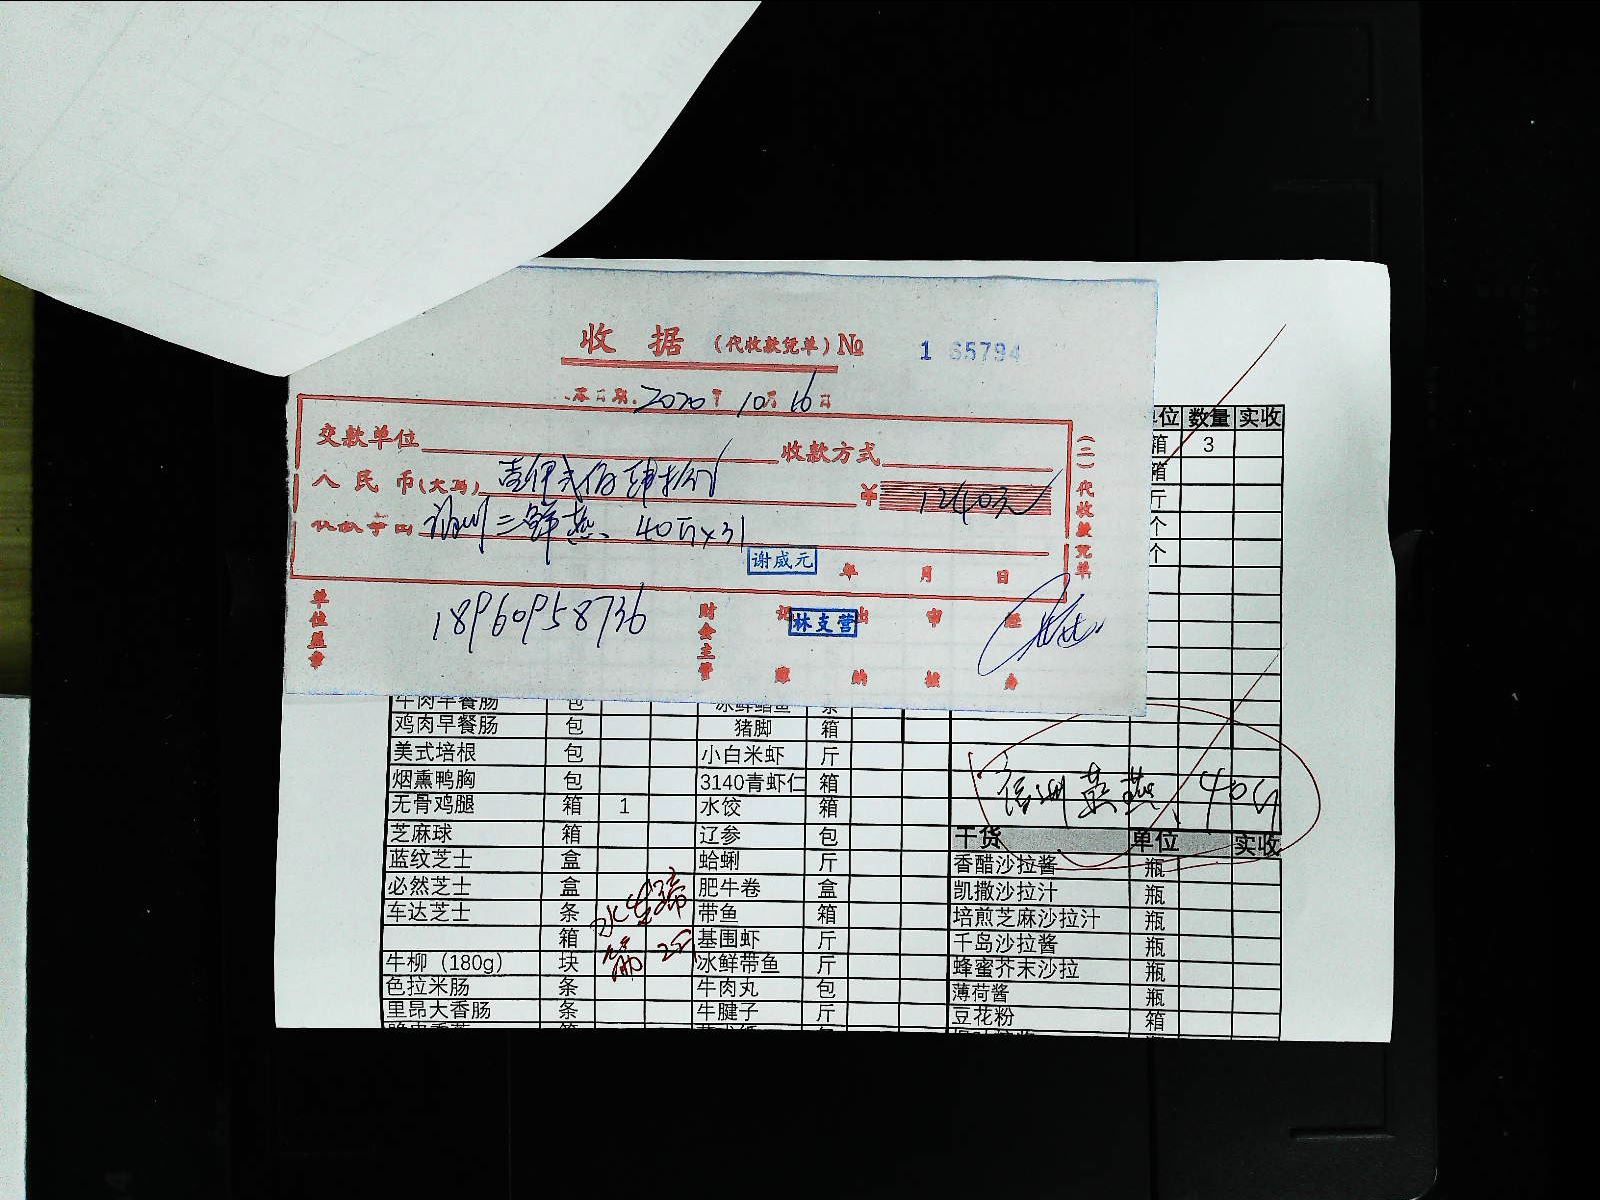 收据(代收款凭单)№ 1 65794
2020年10月16日
交款单位 收款方式
人民币(大写) 壹仟贰佰肆拾 ¥ 1240元
三鲜燕 40斤×31
谢威元
年 月 日
(二)代收款凭单
单位盖章 18960958736 财会主管 记账 出纳 审核 经办
林支营
单位 数量 实收
箱 3
箱
斤
个
个
牛肉早餐肠 包
鸡肉早餐肠 包 猪脚 箱
美式培根 包 小白米虾 斤
烟熏鸭胸 包 3140青虾仁 箱
无骨鸡腿 箱 1 水饺 箱
芝麻球 箱 辽参 包 干货 单位 实收
蓝纹芝士 盒 蛤蜊 斤 香醋沙拉酱 瓶
必然芝士 盒 肥牛卷 盒 凯撒沙拉汁 瓶
车达芝士 条 带鱼 箱 培煎芝麻沙拉汁 瓶
箱 基围虾 斤 千岛沙拉酱 瓶
牛柳（180g） 块 冰鲜带鱼 斤 蜂蜜芥末沙拉 瓶
色拉米肠 条 牛肉丸 包 薄荷酱 瓶
里昂大香肠 条 牛腱子 斤 豆花粉 箱